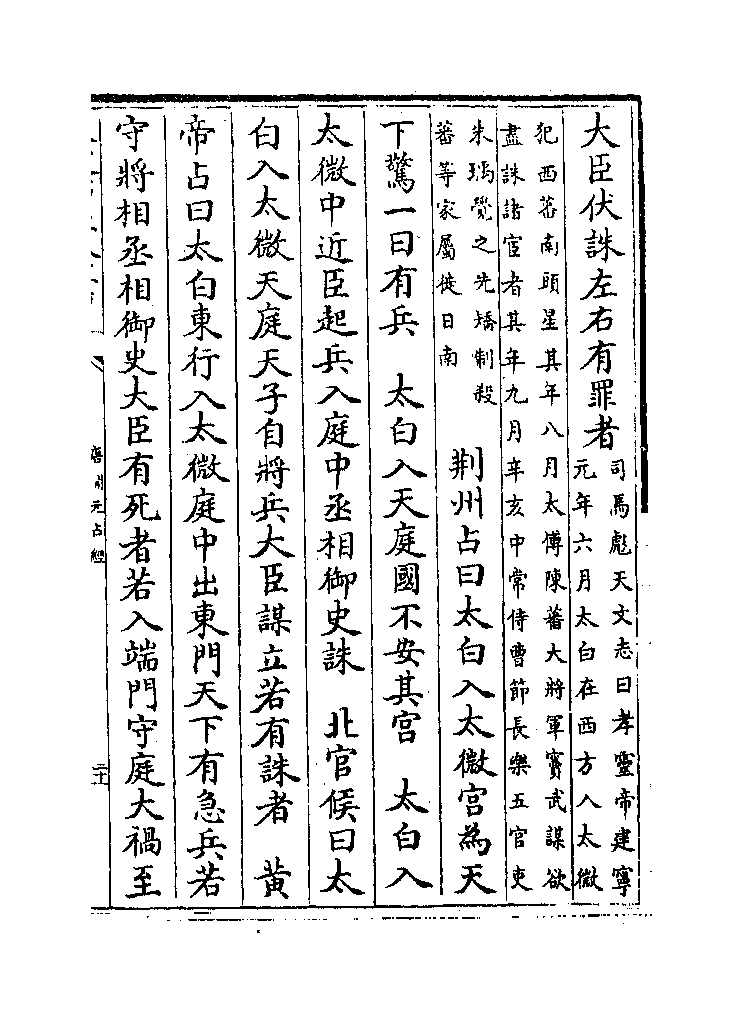 大臣伏誅左右有罪者
司馬彪天文志曰孝靈帝建寧
元年六月太白在西方入太微
犯西蕃南頭星其年八月太傅陳蕃大將軍竇武謀欲
盡誅諸宦者其年九月辛亥中常侍曹節長樂五官吏
朱瑀覺之先矯制殺
蕃等家屬徙日南
荆州占曰太白入太微宫為天
下驚一曰有兵　太白入天庭國不安其宫　太白入
太微中近臣起兵入庭中丞相御史誅　北官候曰太
白入太微天庭天子自將兵大臣謀立若有誅者　黄
帝占曰太白東行入太微庭中出東門天下有急兵若
守將相丞相御史大臣有死者若入端門守庭大禍至
唐開元占經